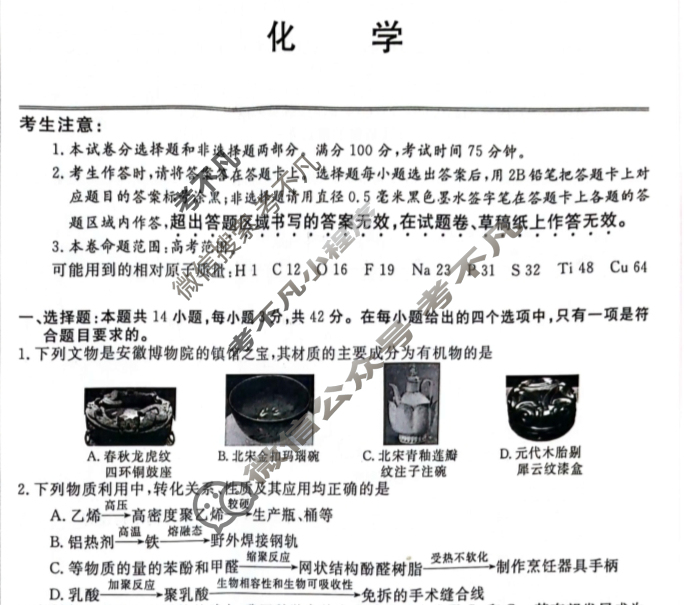 化 学
考生注意:
1.本试卷分选择题和非选择题两部分。满分100分,考试时间75分钟。
2.考生作答时,请将答案答在答题卡上。选择题每小题选出答案后,用2B铅笔把答题卡上对
应题目的答案标号涂黑;非选择题请用直径0.5毫米黑色墨水签字笔在答题卡上各题的答
题区域内作答,超出答题区域书写的答案无效,在试题卷、草稿纸上作答无效。
3.本卷命题范围:高考范围。
可能用到的相对原子质量:H 1 C 12 O 16 F 19 Na 23 P 31 S 32 Ti 48 Cu 64
一、选择题:本题共14小题,每小题3分,共42分。在每小题给出的四个选项中,只有一项是符
合题目要求的。
1.下列文物是安徽博物院的镇馆之宝,其材质的主要成分为有机物的是
A.春秋龙虎纹
四环铜鼓座
B.北宋金扣玛瑙碗
C.北宋青釉莲瓣
纹注子注碗
D.元代木胎剔
犀云纹漆盒
2.下列物质利用中,转化关系、性质及其应用均正确的是
A.乙烯 高压 高密度聚乙烯 较硬 生产瓶、桶等
B.铝热剂 高温 铁 熔融态 野外焊接钢轨
C.等物质的量的苯酚和甲醛 缩聚反应 网状结构酚醛树脂 受热不软化 制作烹饪器具手柄
D.乳酸 加聚反应 聚乳酸 生物相容性和生物可吸收性 免拆的手术缝合线
考不凡
微信搜索考不凡
考不凡小程序
微信公众号考不凡